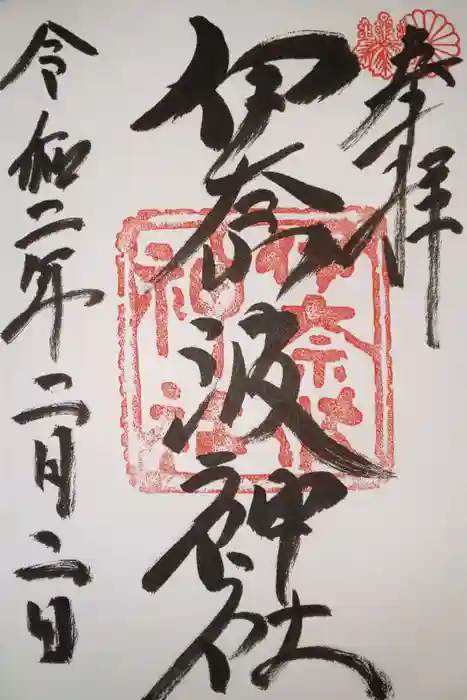 奉拝
伊奈波神社
伊奈波
神社
令和二年二月二日